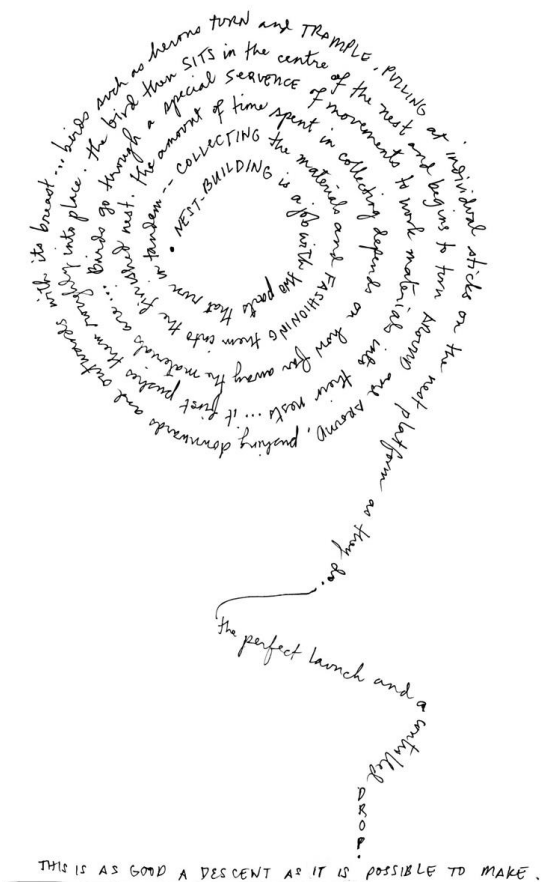 • NEST-BUILDING is a job with two parts that run in tandem -- COLLECTING the materials and FASHIONING them into the finished nest. The amount of time spent in collecting depends on how far away the materials are.... Birds go through a special SEQUENCE of movements to work materials into their nests ... it first pushes them roughly into place. the bird then SITS in the centre of the nest and begins to turn AROUND and AROUND, pushing downwards and outwards with its breast ... birds such as herons TURN and TRAMPLE, PULLING at individual sticks on the nest platform as they do.
the perfect launch and a controlled DROP.
THIS IS AS GOOD A DESCENT AS IT IS POSSIBLE TO MAKE.